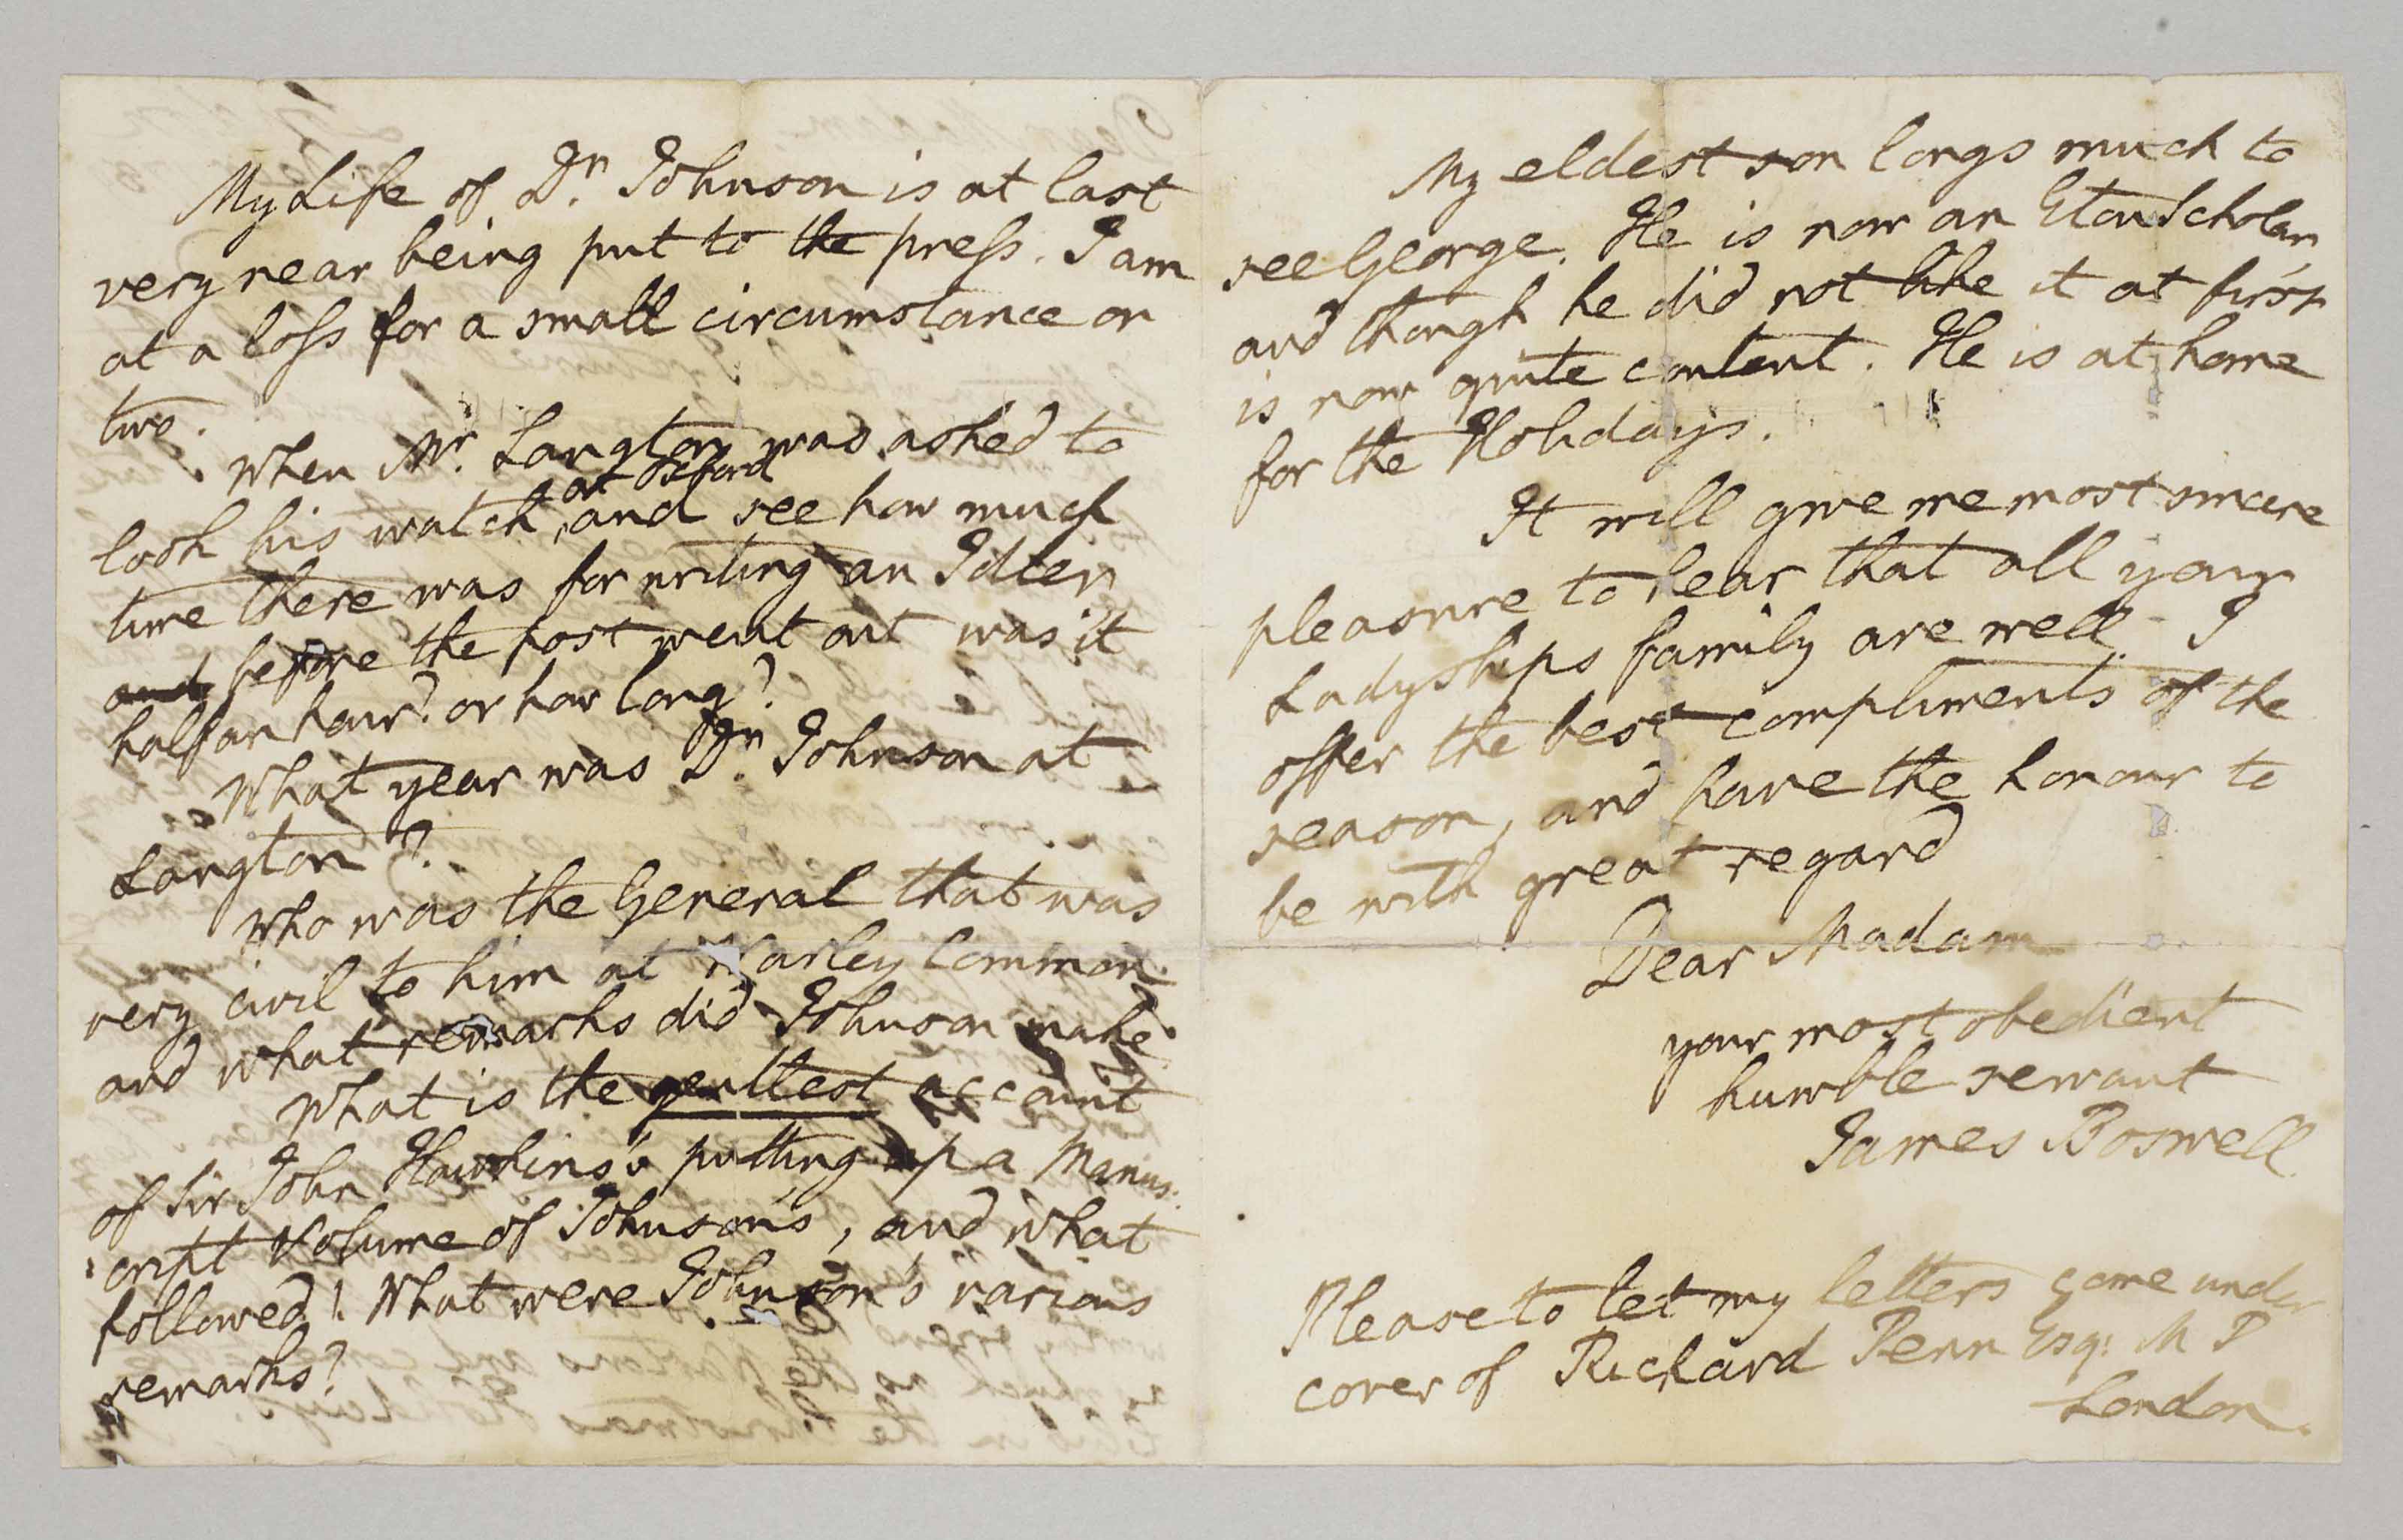 My Life of Dr. Johnson is at last
very near being put to the press. I am
at a loss for a small circumstance or
two.
When Mr. Langton was asked to
at Oxford
look his watch, and see how much
time there was for writing an Idler
and before the post went out was it
half an hour? or how long?
What year was Dr. Johnson at
Langton?
Who was the General that was
very civil to him at Warley Common.
and what remarks did Johnson make
What is the genttest account
of Sir John Hawkins's putting up a Manus:
:cript Volume of Johnson's, and what
followed? What were Johnson's various
remarks?
My eldest son longs much to
see George. He is now an Eton Scholar,
and though he did not like it at first
is now quite content. He is at home
for the Holidays.
It will give me most sincere
pleasure to hear that all your
Ladyships family are well. I
offer the best compliments of the
season, and have the honour to
be with great regard
Dear Madam
your most obedient
humble servant
James Boswell.
Please to let my letters come under
cover of Richard Penn Esq: M P
London.